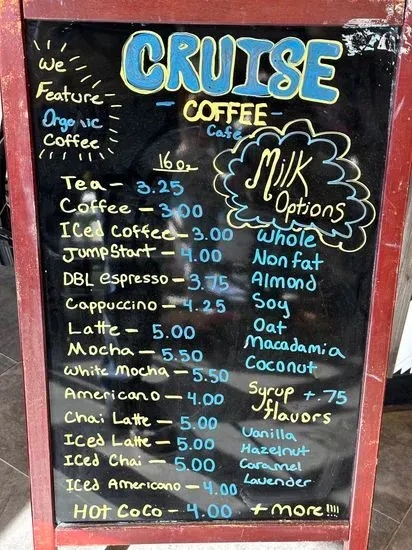 We
Feature
Organic
Coffee
CRUISE
- COFFEE -
Café
16 Oz
Tea - 3.25
Coffee - 3.00
ICed Coffee - 3.00
JumpStart - 4.00
DBL espresso - 3.75
Cappuccino - 4.25
Latte - 5.00
Mocha - 5.50
White Mocha - 5.50
Americano - 4.00
Chai Latte - 5.00
ICed Latte - 5.00
ICed Chai - 5.00
ICed Americano - 4.00
HOT CoCo - 4.00
Milk
Options
Whole
Nonfat
Almond
Soy
Oat
Macadamia
Coconut
Syrup + .75
flavors
Vanilla
Hazelnut
Caramel
Lavender
+ more!!!!